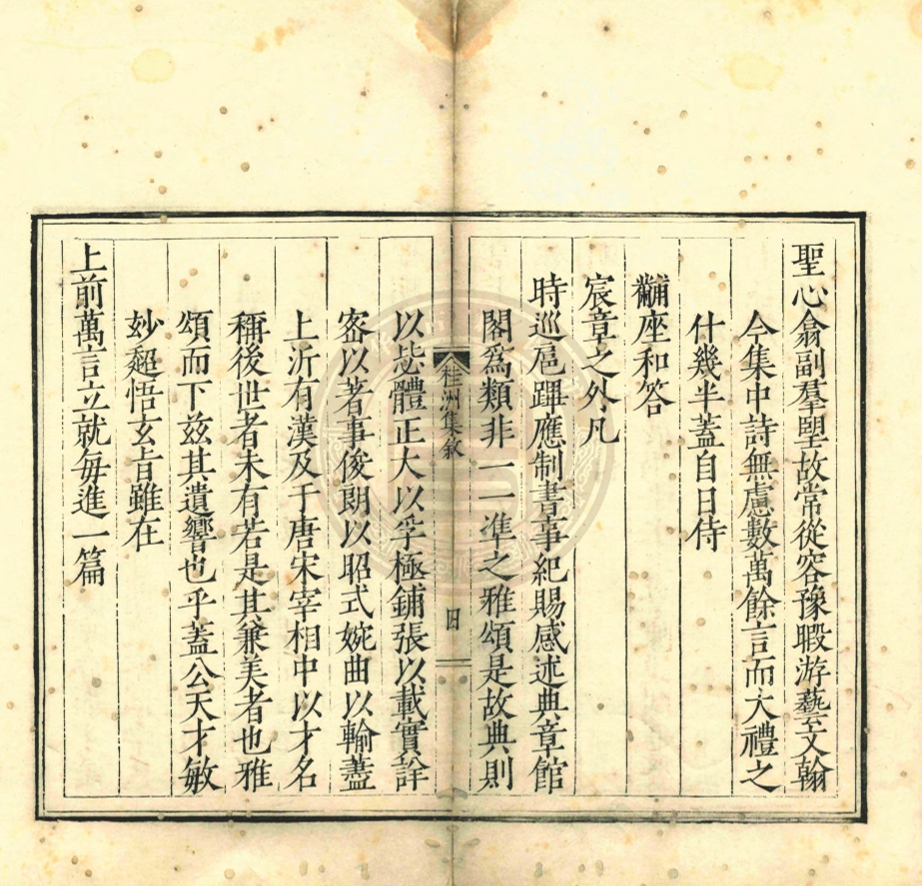 聖心翕副羣朢故常從容豫暇游藝文翰
今集中詩無慮數萬餘言而大禮之
什幾半蓋自日侍
黼座和答
宸章之外凡
時巡扈蹕應制書事紀賜感述典章館
閣爲類非一一凖之雅頌是故典則
桂洲集敘
四
以毖體正大以孚極鋪張以載實詳
宻以著事俊朗以昭式婉曲以輸藎
上泝有漢及于唐宋宰相中以才名
稱後世者未有若是其兼美者也雅
頌而下兹其遺響也乎蓋公天才敏
妙超悟玄旨雖在
上前萬言立就每進一篇